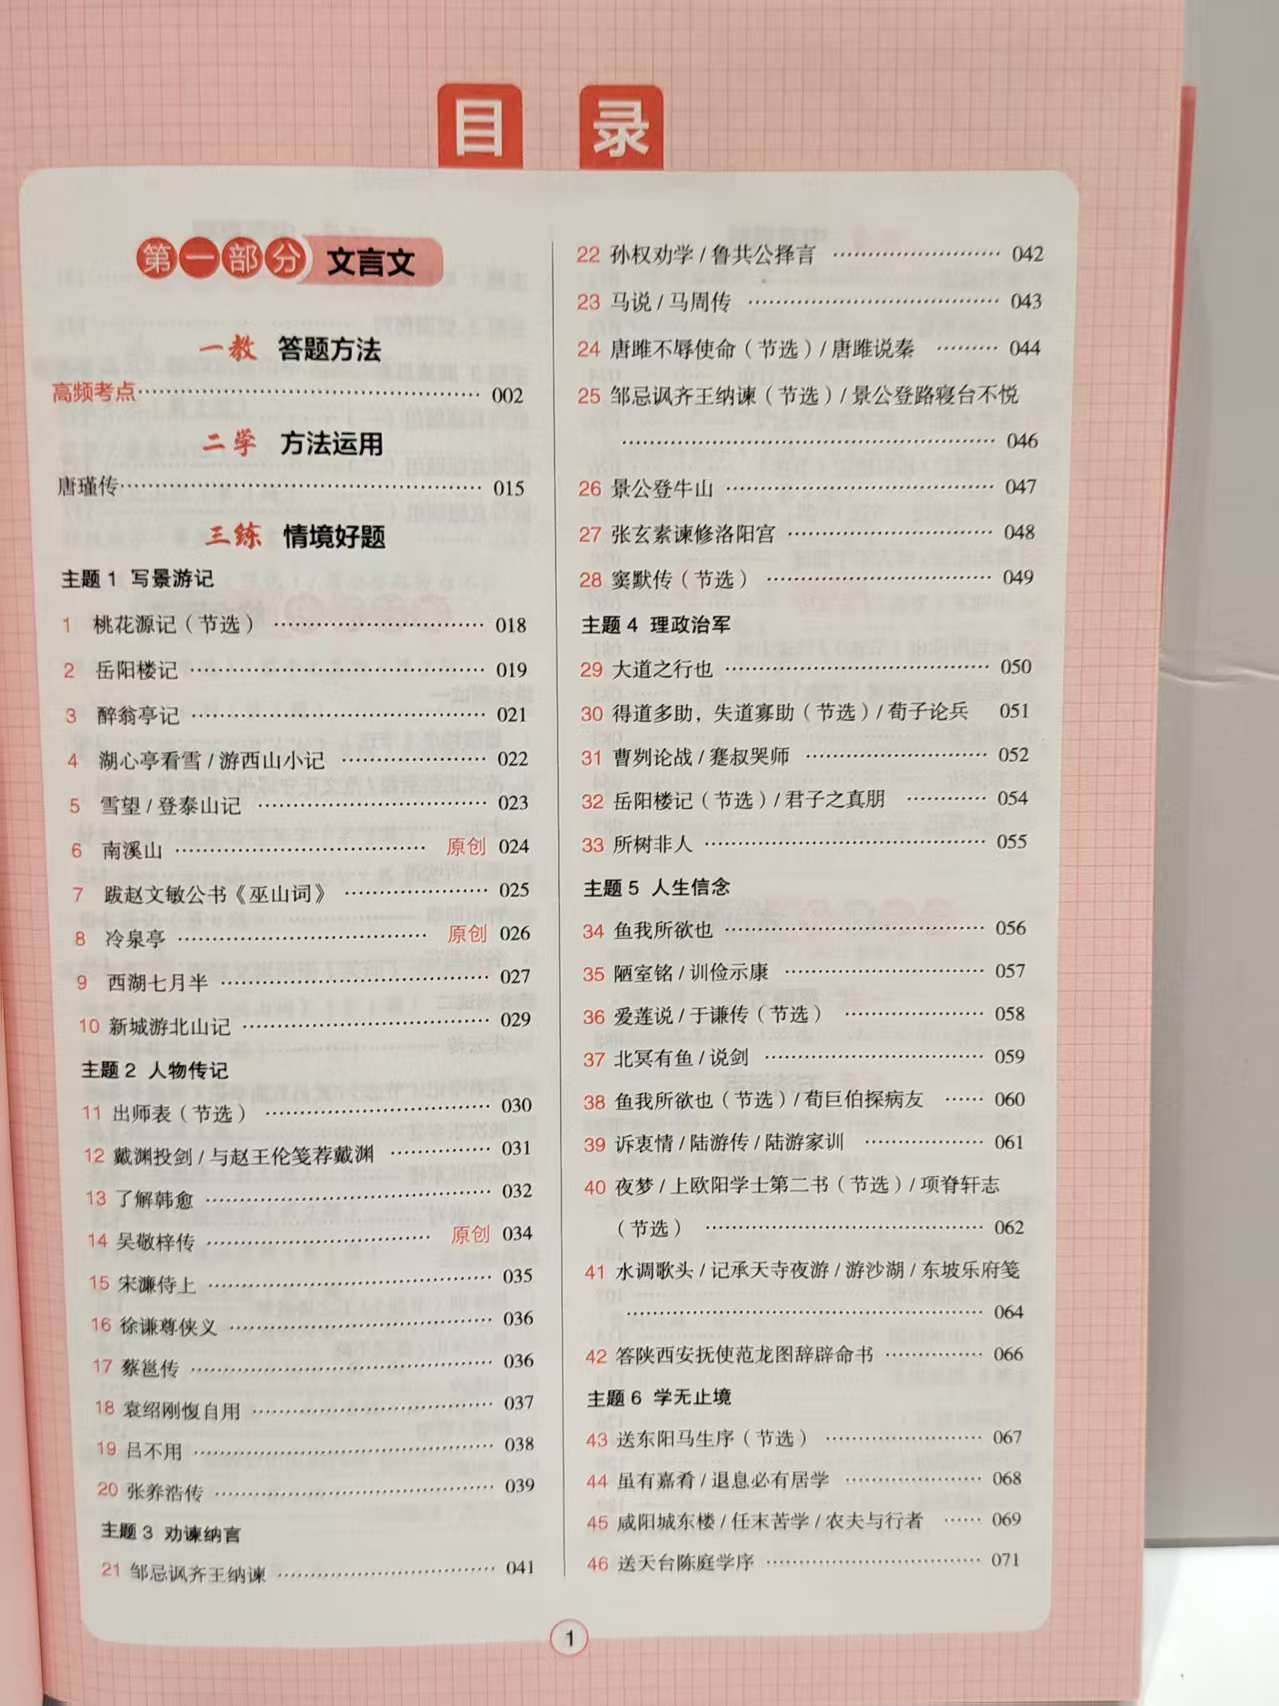 目 录
第一部分 文言文
一教 答题方法
高频考点 002
二学 方法运用
唐瑾传 015
三练 情境好题
主题1 写景游记
1 桃花源记（节选） 018
2 岳阳楼记 019
3 醉翁亭记 021
4 湖心亭看雪/游西山小记 022
5 雪望/登泰山记 023
6 南溪山 原创 024
7 跋赵文敏公书《巫山词》 025
8 冷泉亭 原创 026
9 西湖七月半 027
10 新城游北山记 029
主题2 人物传记
11 出师表（节选） 030
12 戴渊投剑/与赵王伦笺荐戴渊 031
13 了解韩愈 032
14 吴敬梓传 原创 034
15 宋濂侍上 035
16 徐谦尊侠义 036
17 蔡邕传 036
18 袁绍刚愎自用 037
19 吕不用 038
20 张养浩传 039
主题3 劝谏纳言
21 邹忌讽齐王纳谏 041
22 孙权劝学/鲁共公择言 042
23 马说/马周传 043
24 唐雎不辱使命（节选）/唐雎说秦 044
25 邹忌讽齐王纳谏（节选）/景公登路寝台不悦
046
26 景公登牛山 047
27 张玄素谏修洛阳宫 048
28 窦默传（节选） 049
主题4 理政治军
29 大道之行也 050
30 得道多助，失道寡助（节选）/荀子论兵 051
31 曹刿论战/蹇叔哭师 052
32 岳阳楼记（节选）/君子之真朋 054
33 所树非人 055
主题5 人生信念
34 鱼我所欲也 056
35 陋室铭/训俭示康 057
36 爱莲说/于谦传（节选） 058
37 北冥有鱼/说剑 059
38 鱼我所欲也（节选）/荀巨伯探病友 060
39 诉衷情/陆游传/陆游家训 061
40 夜梦/上欧阳学士第二书（节选）/项脊轩志
（节选） 062
41 水调歌头/记承天寺夜游/游沙湖/东坡乐府笺
064
42 答陕西安抚使范龙图辞辟命书 066
主题6 学无止境
43 送东阳马生序（节选） 067
44 虽有嘉肴/退息必有居学 068
45 咸阳城东楼/任末苦学/农夫与行者 069
46 送天台陈庭学序 071
1